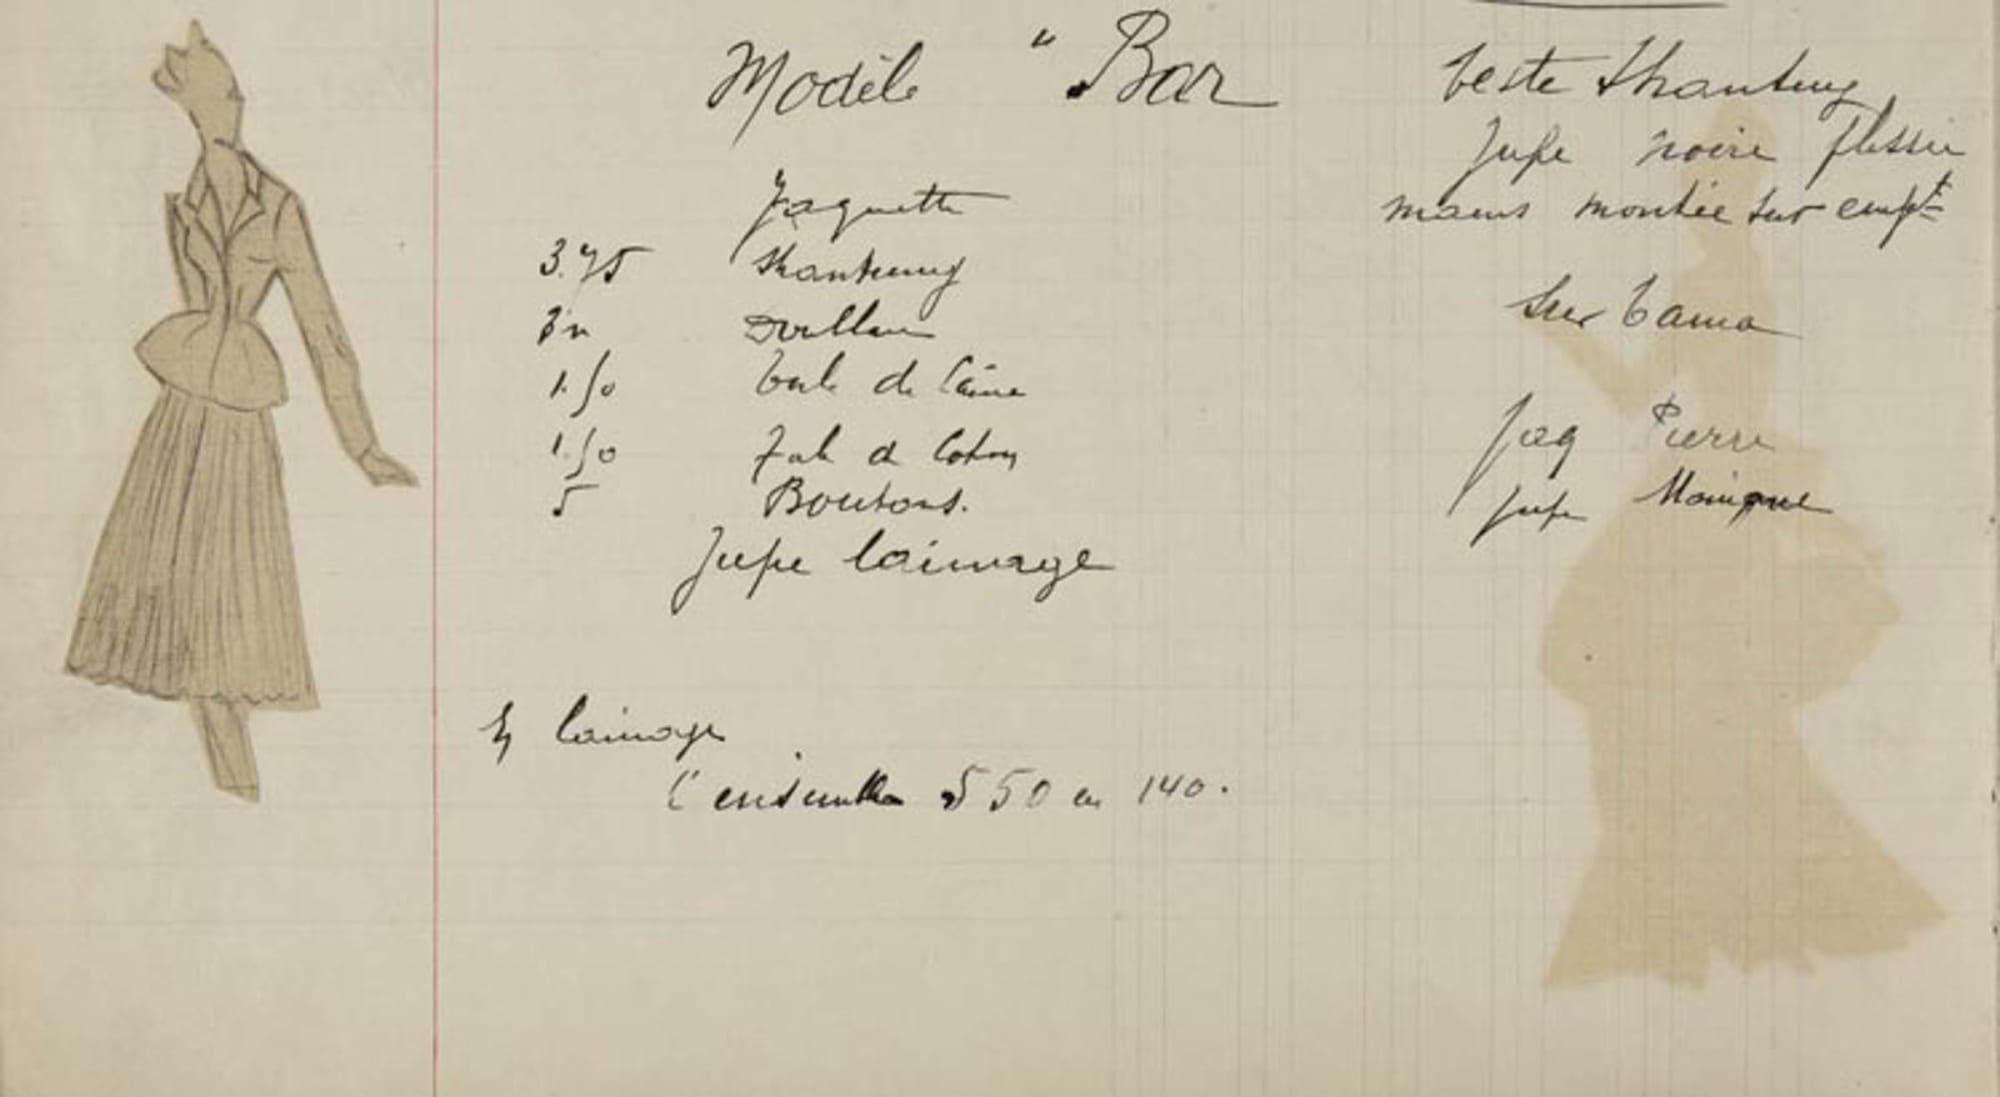 Modèle "Bar
Jaquette
3.75 Shantung
1.50 Toile de laine
1.50 Toile de Coton
5 Boutons.
Jupe lainage
lainage
l'ensemble 5 50 en 140.
Veste Shantung
Jupe noire plissée
mains montée sur empt
Sur Tania
Jaq Pierre
Jupe Monique